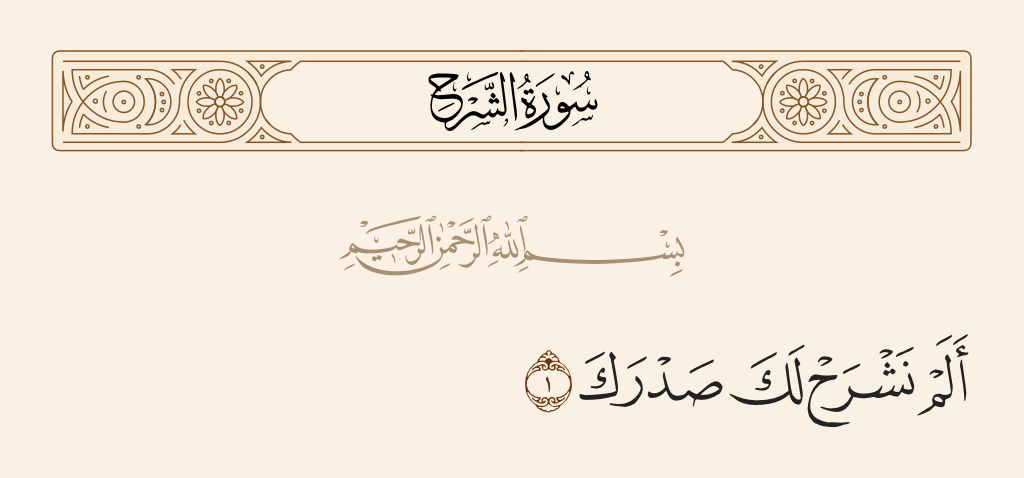 سُورَةُ الشَّرْحِ
بِسْمِ ٱللَّهِ ٱلرَّحْمَٰنِ ٱلرَّحِيمِ
أَلَمْ نَشْرَحْ لَكَ صَدْرَكَ ١